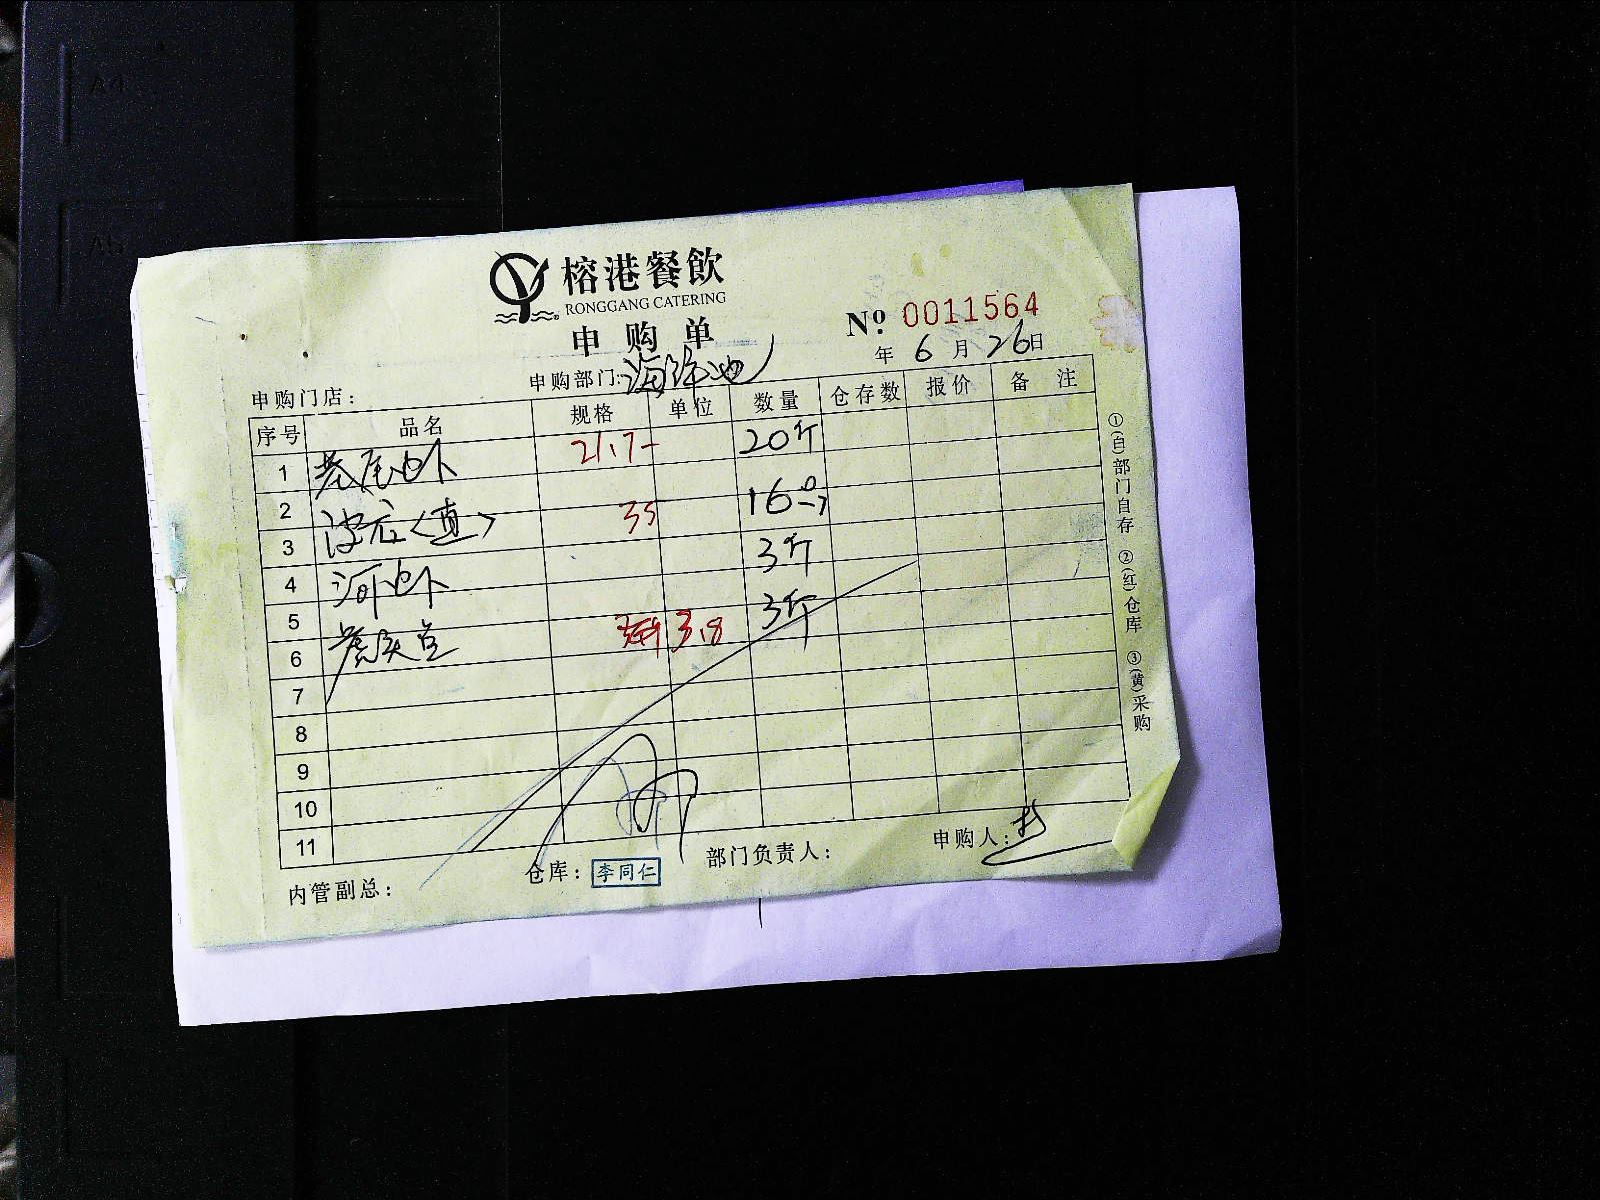 A4
A5
榕港餐飲
RONGGANG CATERING
申购单
Nº 0011564
年 6 月 26 日
申购门店： 申购部门: 海鲜池
序号 品名 规格 单位 数量 仓存数 报价 备注
1 基尾虾 21.7 20斤
2
3 波龙<直> 35 16只
4 河虾 3斤
5
6 老虎鱼 3.8 3斤
7
8
9
10
11
内管副总： 仓库： 李同仁 部门负责人： 申购人：
①(白)部门自存 ②(红)仓库 ③(黄)采购